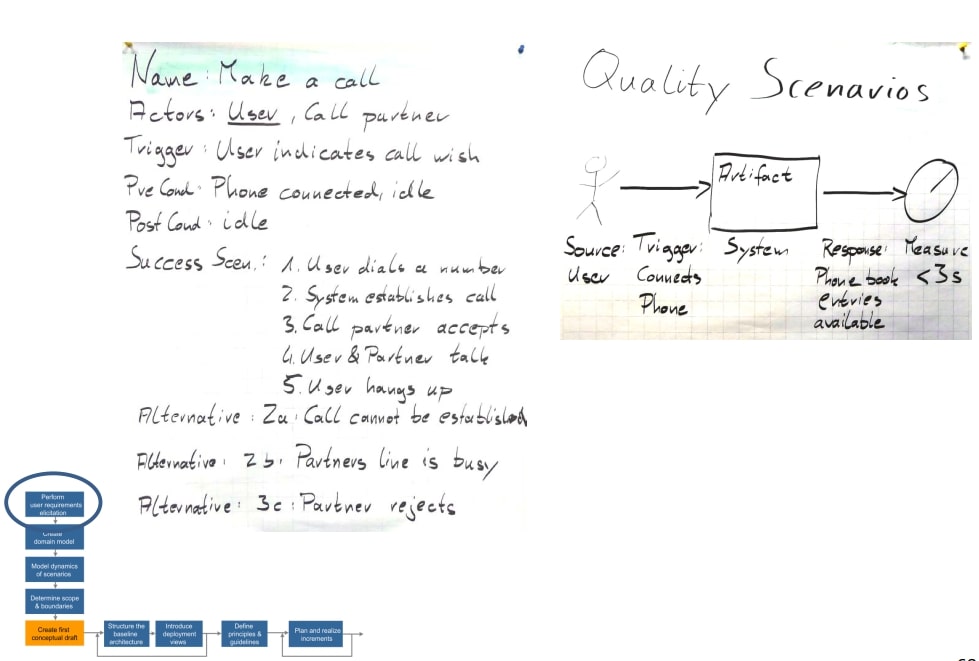 Name: Make a call
Actors: User, Call partner
Trigger: User indicates call wish
Pre Cond: Phone connected, idle
Post Cond: idle
Success Scen.: 1. User dials a number
2. System establishes call
3. Call partner accepts
4. User & Partner talk
5. User hangs up
Alternative: 2a: Call cannot be established
Alternative: 2b: Partners line is busy
Alternative: 3c: Partner rejects
Quality Scenarios
Artifact
Source: Trigger: System Response: Measure
User Connects Phone book <3s
Phone entries
available
Perform
user requirements
elicitation
Create
domain model
Model dynamics
of scenarios
Determine scope
& boundaries
Create first
conceptual draft
Structure the
baseline
architecture
Introduce
deployment
views
Define
principles &
guidelines
Plan and realize
increments